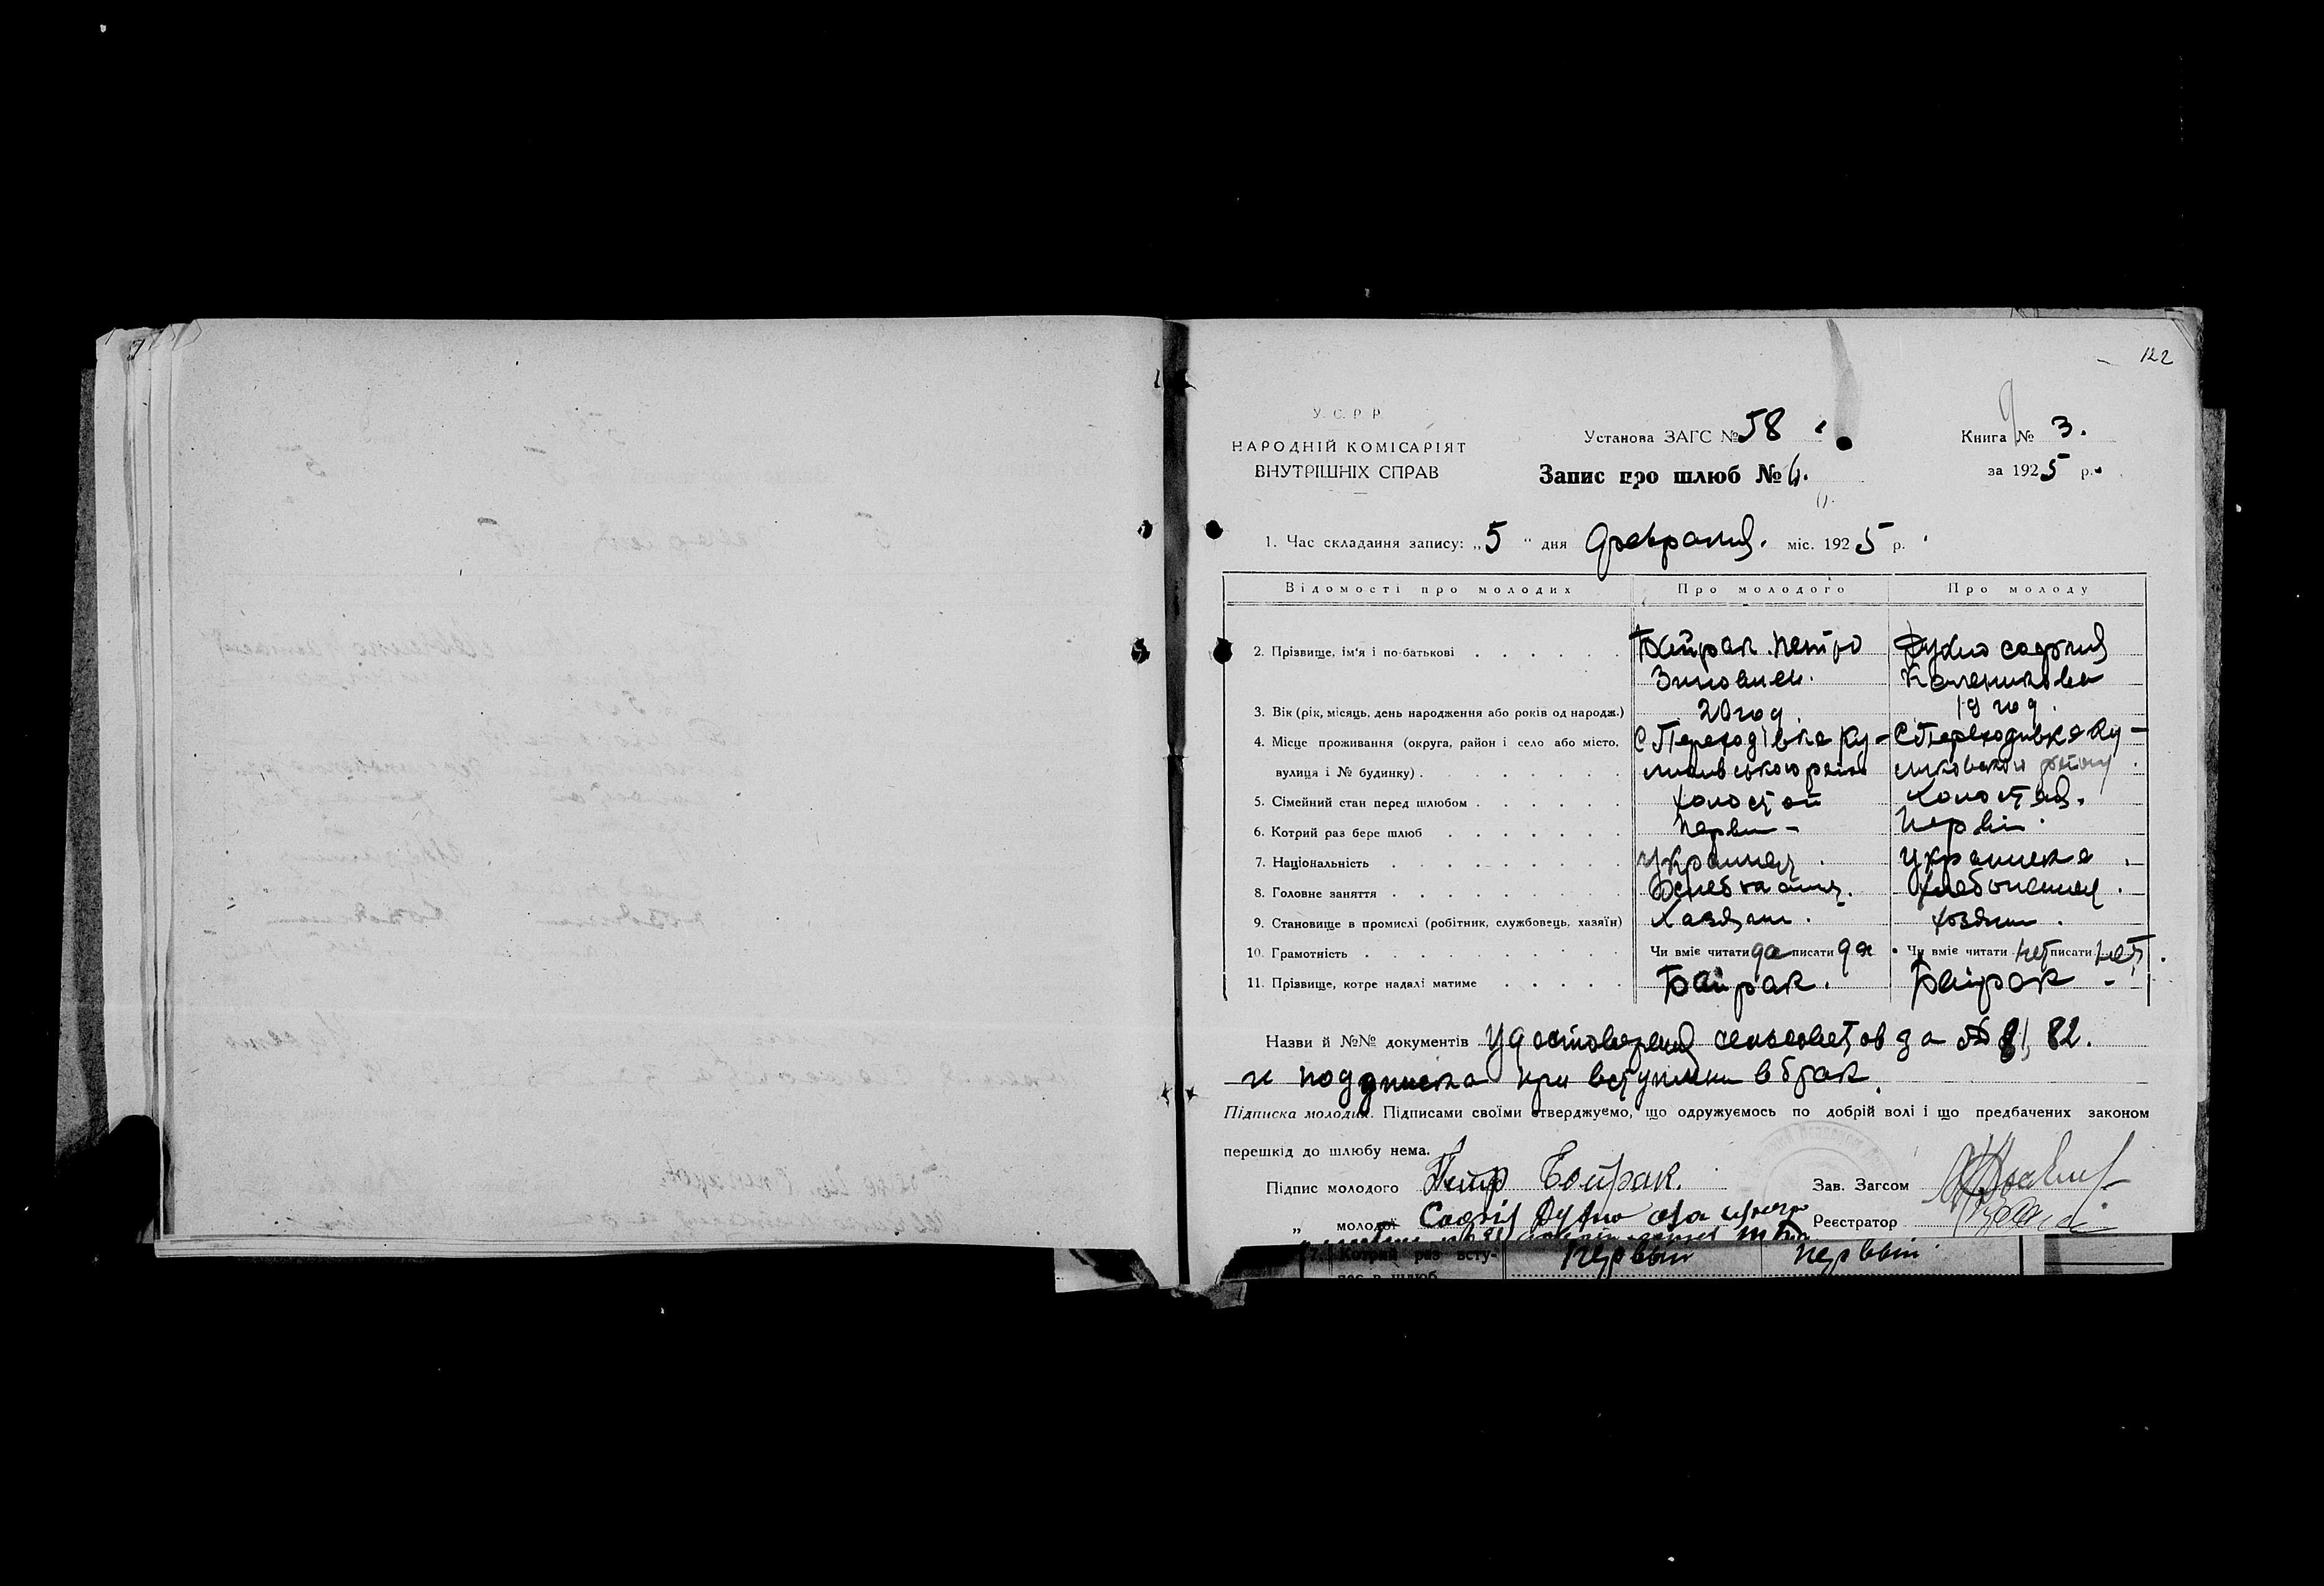 122
У. С. Р. Р.
НАРОДНІЙ КОМІСАРІЯТ
ВНУТРІШНІХ СПРАВ
Установа ЗАГС № 58
Книга № 3.
Запис про шлюб №
за 1925 р.
1. Час складання запису: „5“ дня февраля. міс. 1925 р.
Відомості про молодих Про молодого Про молоду
2. Прізвище, ім'я і по-батькові Байрак Петро Духно София
Каленикова
3. Вік (рік, місяць, день народження або років од народж.) 20 год. 19 год.
4. Місце проживання (округа, район і село або місто, С Переходівка Ку- С Переходивка Ку-
вулиця і № будинку)
5. Сімейний стан перед шлюбом холостой холостая.
6. Котрий раз бере шлюб
7. Національність украинец украинка
8. Головне заняття
9. Становище в промислі (робітник, службовець, хазяїн) Хазяин. хозяин.
10. Грамотність Чи вміє читати да писати да Чи вміє читати нет писати нет.
11. Прізвище, котре надалі матиме Байрак. Байрак
Назви й №№ документів Удостоверения сельсоветов за № 81, 82.
и подписка при вступлении в брак.
Підписка молодих. Підписами своїми стверджуємо, що одружуємось по добрій волі і що предбачених законом
перешкід до шлюбу нема.
Підпис молодого Петр Байрак. Зав. Загсом
„ молодої Софія Духно Реєстратор
7. Котрий раз всту- первый первый